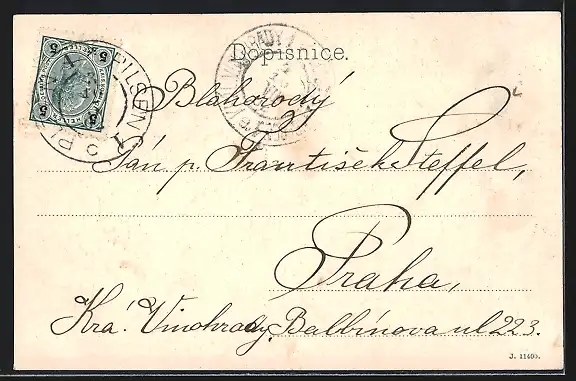 Dopisnice.
5 HELLER 5
PILSEN 1
Blahorodý
Pán p. František Steffel,
Praha,
Krá. Vinohrady, Balbínova ul 223.
J. 11400.